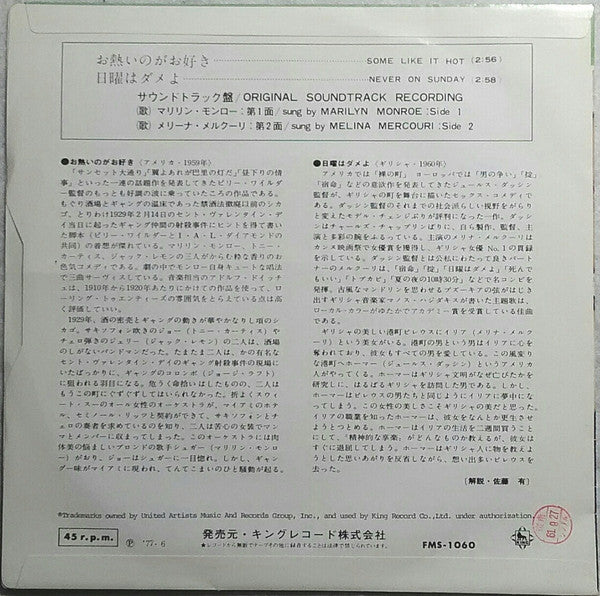 お熱いのがお好き SOME LIKE IT HOT (2:56)
日曜はダメよ NEVER ON SUNDAY (2:58)
サウンドトラック盤/ORIGINAL SOUNDTRACK RECORDING
(歌) マリリン・モンロー:第1面/sung by MARILYN MONROE:Side 1
(歌) メリーナ・メルクーリ:第2面/sung by MELINA MERCOURI:Side 2
●お熱いのがお好き(アメリカ・1959年)
「サンセット大通り」「翼よあれが巴里の灯だ」「昼下りの情
事」といった一連の話題作を発表してきたビリー・ワイルダ
ー監督のもっとも好調の波に乗っていたころの作品である。
もぐり酒場とギャングの温床であった禁酒法撤廃以前のシカ
ゴ、とりわけ1929年2月14日のセント・ヴァレンタイン・デ
イ当日に起ったギャング仲間の射殺事件にヒントを得て書い
た脚本(ビリー・ワイルダーとI・A・L・ダイアモンドの
共同)の着想が優れている。マリリン・モンロー、トニー・
カーティス、ジャック・レモンの三人がからむ粋な香りのお
色気コメディである。劇の中でモンロー自身キュートな唱法
で三曲サーヴィスしている。音楽担当のアドルフ・ドイッチ
ェは、1910年から1920年あたりにかけての作品を使って、ロ
ーリング・トゥエンティーズの雰囲気をとらえている点は高
く評価していい。
1929年、酒の密売とギャングの動きが華やかなりし頃のシ
カゴ。サキソフォン吹きのジョー(トニー・カーティス)や
チェロ弾きのジェリー(ジャック・レモン)の二人は、酒場
のしがないバンドマンだった。たまたま二人は、かの有名な
セント・ヴァレンタイン・デイのギャング射殺事件の現場に
いたばっかりに、ギャングのコロンボ(ジョージ・ラフト)
に狙われる羽目になる。危うく命拾いはしたものの、二人は
もうこの町にぐずぐずしてはいられなかった。折よくスウィ
ート・スーのオール女性のオーケストラが、マイアミのホテ
ル、セミノール・リッツと契約ができて、サキソフォンとチ
ェロの奏者を求めているのを知り、二人は苦心の女装でマン
マとメンバーに収まってしまった。このオーケストラには肉
体美の悩ましいブロンドの歌手シュガー(マリリン・モンロ
ー)がおり、ジョーはシュガーに一目惚れ。しかし、ギャン
グ一味がマイアミに現われ、てんてこまいのひと騒動が起る。
●日曜はダメよ(ギリシャ・1960年)
アメリカでは「裸の町」、ヨーロッパでは「男の争い」「掟」
「宿命」などの意欲作を発表してきたジュールス・ダッシン
監督が、ギリシャの町を舞台に描いたセックス・コメディで
ある。ダッシン監督のそれまでの社会派らしい視野をがらり
と変えたモデル・チェンジぶりが評判になった一作。ダッシ
ンはチャールズ・チャップリンばりに、自ら製作、監督、主
演と多彩の腕をふるっている。主演のメリナ・メルクーリは
カンヌ映画祭で女優賞を獲得し、ギリシャ女優No.1の貫録
を示している。ダッシン監督とは公私にわたって良きパート
ナーのメルクーリは、「宿命」「掟」「日曜はダメよ」「死んで
もいい」「トプカピ」「夏の夜の10時30分」などで名コンビを
発揮。古風なマンドリンを思わせるブズーキアの弦がはじき
出すギリシャ音楽家マノス・ハジダキスが書いた主題歌は、
ローカル・カラーがゆたかでアカデミー音楽賞を受賞している佳曲
である。
ギリシャの美しい港町ピレウスにイリア(メリナ・メルク
ーリ)という美女がいる。港町の男という男はイリアに心を
奪われており、彼女もすべての男を愛している。この風変り
な港町へホーマー(ジュールス・ダッシン)というアメリカ
人がやってくる。ホーマーはギリシャ文明がなぜ亡びたかを
研究しに、はるばるギリシャを訪問した男である。しかし、
ホーマーはピレウスの男たちと同じようにイリアに夢中にな
ってしまう。この女性の美しさこそギリシャの美だと思った。
イリアの職業を知ったホーマーは、彼女をなんとか更生させ
ようとつとめるのだった。ホーマーはイリアの生活を二週間買うこと
にして、「精神的な享楽」がどんなものか教えるが、彼女は
すぐに退屈してしまう。ホーマーはギリシャ人に物を教えよ
うとした思いあがりを反省しながら、想い出多いピレウスを
去った。
〔解説・佐藤 有〕
®Trademarks owned by United Artists Music And Records Group, Inc., and used by King Record Co., Ltd. under authorization.
45 r.p.m. Ⓟ '77・6 発売元・キングレコード株式会社 FMS-1060
★レコードから無断でテープその他に録音することは法律で禁じられています。
61.9.27